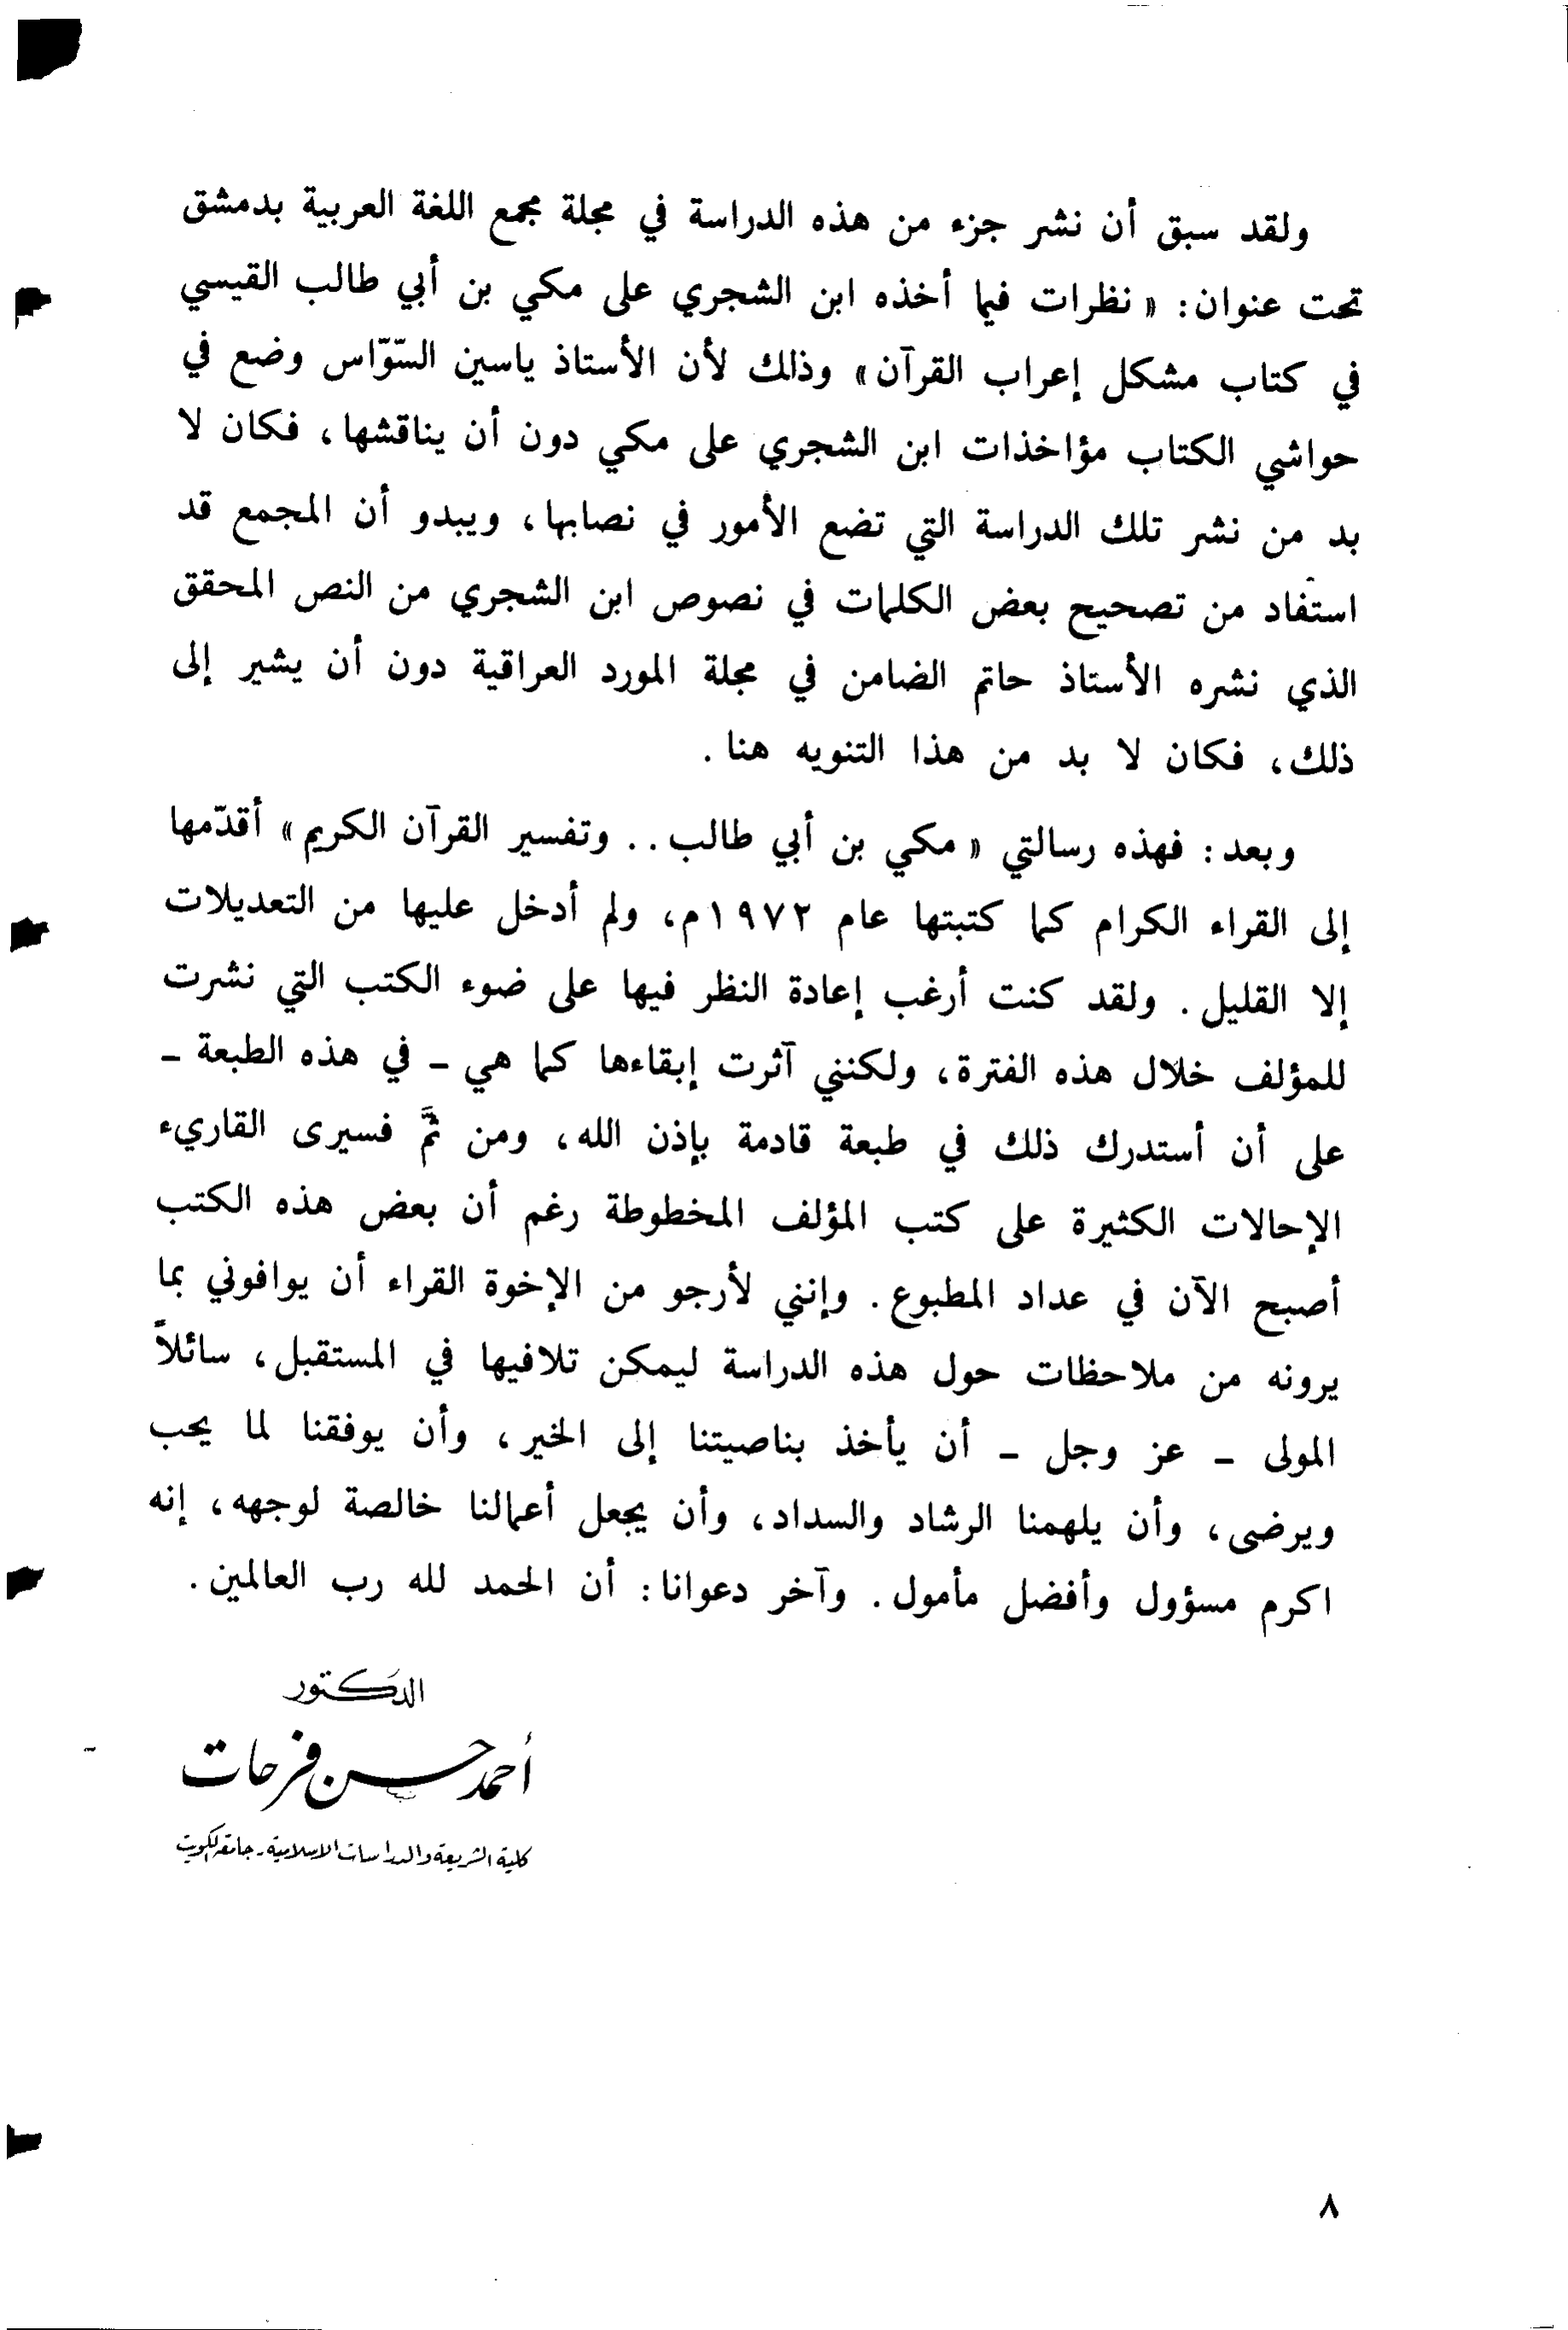 ولقد سبق أن نشر جزء من هذه الدراسة في مجلة مجمع اللغة العربية بدمشق
تحت عنوان: « نظرات فيما أخذه ابن الشجري على مكي بن أبي طالب القيسي
في كتاب مشكل إعراب القرآن» وذلك لأن الأستاذ ياسين السّوّاس وضع في
حواشي الكتاب مؤاخذات ابن الشجري على مكي دون أن يناقشها، فكان لا
بد من نشر تلك الدراسة التي تضع الأمور في نصابها، ويبدو أن المجمع قد
استفاد من تصحيح بعض الكلمات في نصوص ابن الشجري من النص المحقق
الذي نشره الأستاذ حاتم الضامن في مجلة المورد العراقية دون أن يشير إلى
ذلك، فكان لا بد من هذا التنويه هنا.
وبعد: فهذه رسالتي « مكي بن أبي طالب.. وتفسير القرآن الكريم» أقدّمها
إلى القراء الكرام كما كتبتها عام ١٩٧٢م، ولم أدخل عليها من التعديلات
إلا القليل. ولقد كنت أرغب إعادة النظر فيها على ضوء الكتب التي نشرت
للمؤلف خلال هذه الفترة، ولكنني آثرت إبقاءها كما هي - في هذه الطبعة -
على أن أستدرك ذلك في طبعة قادمة بإذن الله، ومن ثَّم فسيرى القاريء
الإحالات الكثيرة على كتب المؤلف المخطوطة رغم أن بعض هذه الكتب
أصبح الآن في عداد المطبوع. وإنني لأرجو من الإخوة القراء أن يوافوني بما
يرونه من ملاحظات حول هذه الدراسة ليمكن تلافيها في المستقبل، سائلاً
المولى - عز وجل - أن يأخذ بناصيتنا إلى الخير، وأن يوفقنا لما يحب
ويرضى، وأن يلهمنا الرشاد والسداد، وأن يجعل أعمالنا خالصة لوجهه، إنه
اكرم مسؤول وأفضل مأمول. وآخر دعوانا: أن الحمد لله رب العالمين.
الدكتور
أحمد حسن فرحات
كلية الشريعة والدراسات الاسلامية - جامعة الكويت
٨